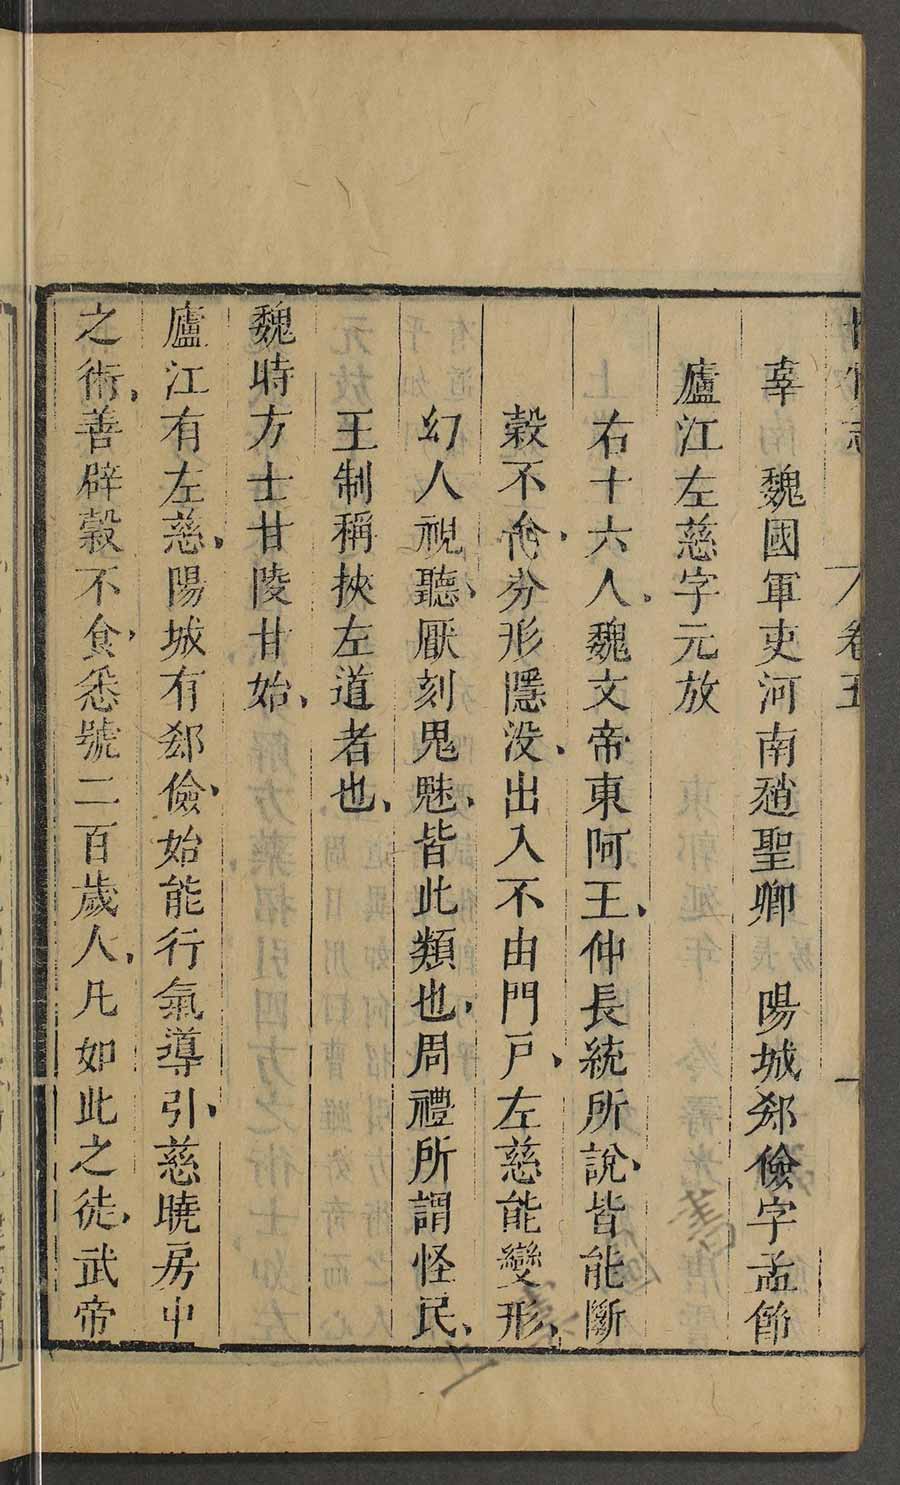 博物志 卷五
辜 魏國軍吏河南趙聖卿 陽城郄儉字孟節
廬江左慈字元放
右十六人魏文帝東阿王仲長統所說皆能斷
穀不食分形隱没出入不由門戸左慈能變形
幻人視聽厭刻鬼魅皆此類也周禮所謂怪民
王制稱挾左道者也
魏時方士甘陵甘始
廬江有左慈陽城有郄儉始能行氣導引慈曉房中
之術善辟穀不食悉號二百歲人凡如此之徒武帝